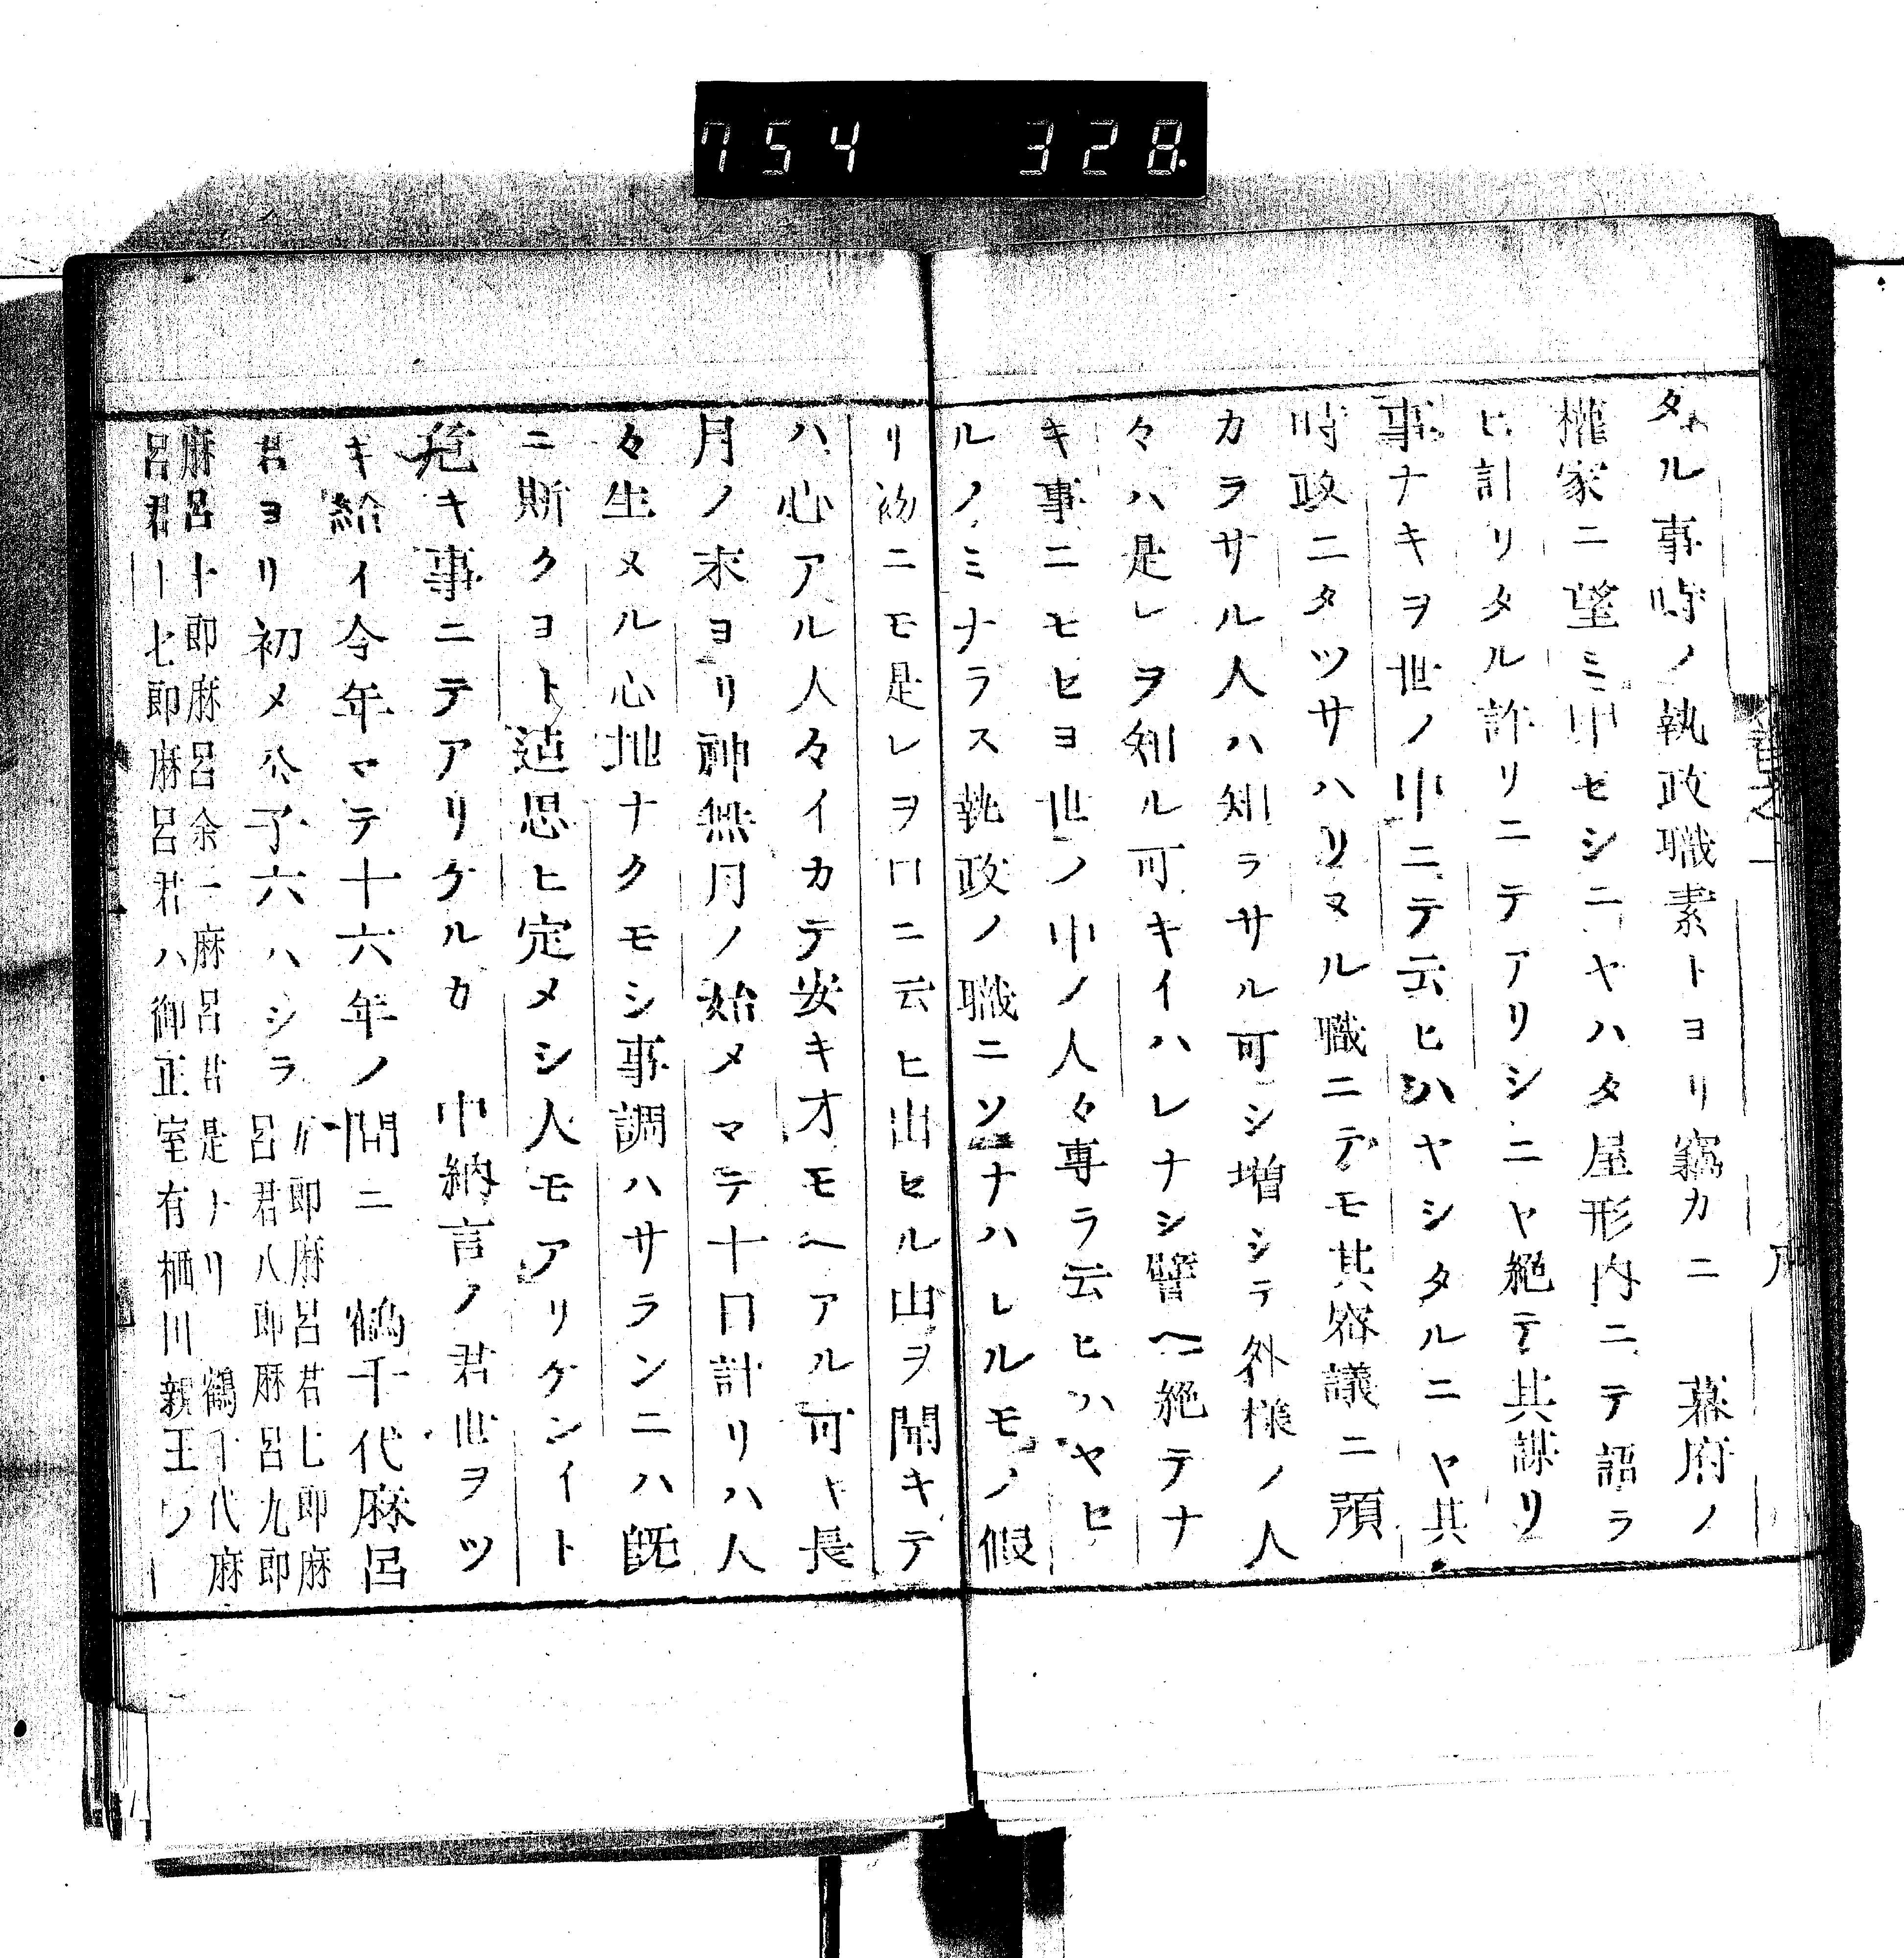 754 328
タル事時ノ執政職素トヨリ竊カニ 幕府ノ
權家ニ望ミ申セシニヤハタ屋形内ニテ語ラ
ヒ計リタル許リニテアリシニヤ絶テ其謀リ
事ナキヲ世ノ中ニテ云ヒハヤシタルニヤ其
時政ニタツサハリヌル職ニテモ其密議ニ預
カラサル人ハ知ラサル可シ増シテ外様ノ人
々ハ是レヲ知ル可キイハレナシ譬ヘ絶テナ
キ事ニモセヨ世ノ中ノ人々専ラ云ヒハヤセ
ルノミナラス執政ノ職ニソナハレルモノ假
リ初ニモ是レヲ口ニ云ヒ出セル由ヲ聞キテ
ハ心アル人々イカテ安キオモヘアル可キ長
月ノ末ヨリ神無月ノ始メマテ十日計リハ人
々生メル心地ナクモシ事調ハサランニハ既
ニ斯クヨト迠思ヒ定メシ人モアリケンイト
危キ事ニテアリケルカ 中納言ノ君世ヲツ
キ給イ今年マテ十六年ノ間ニ 鶴千代麻呂
君ヨリ初メ公子六ハシラ
郎麻呂君七郎麻
呂君八郎麻呂九郎
麻呂十郎麻呂余一麻呂君是トリ 鶴千代麻
呂君七郎麻呂君ハ御正室有栖川親王ノ